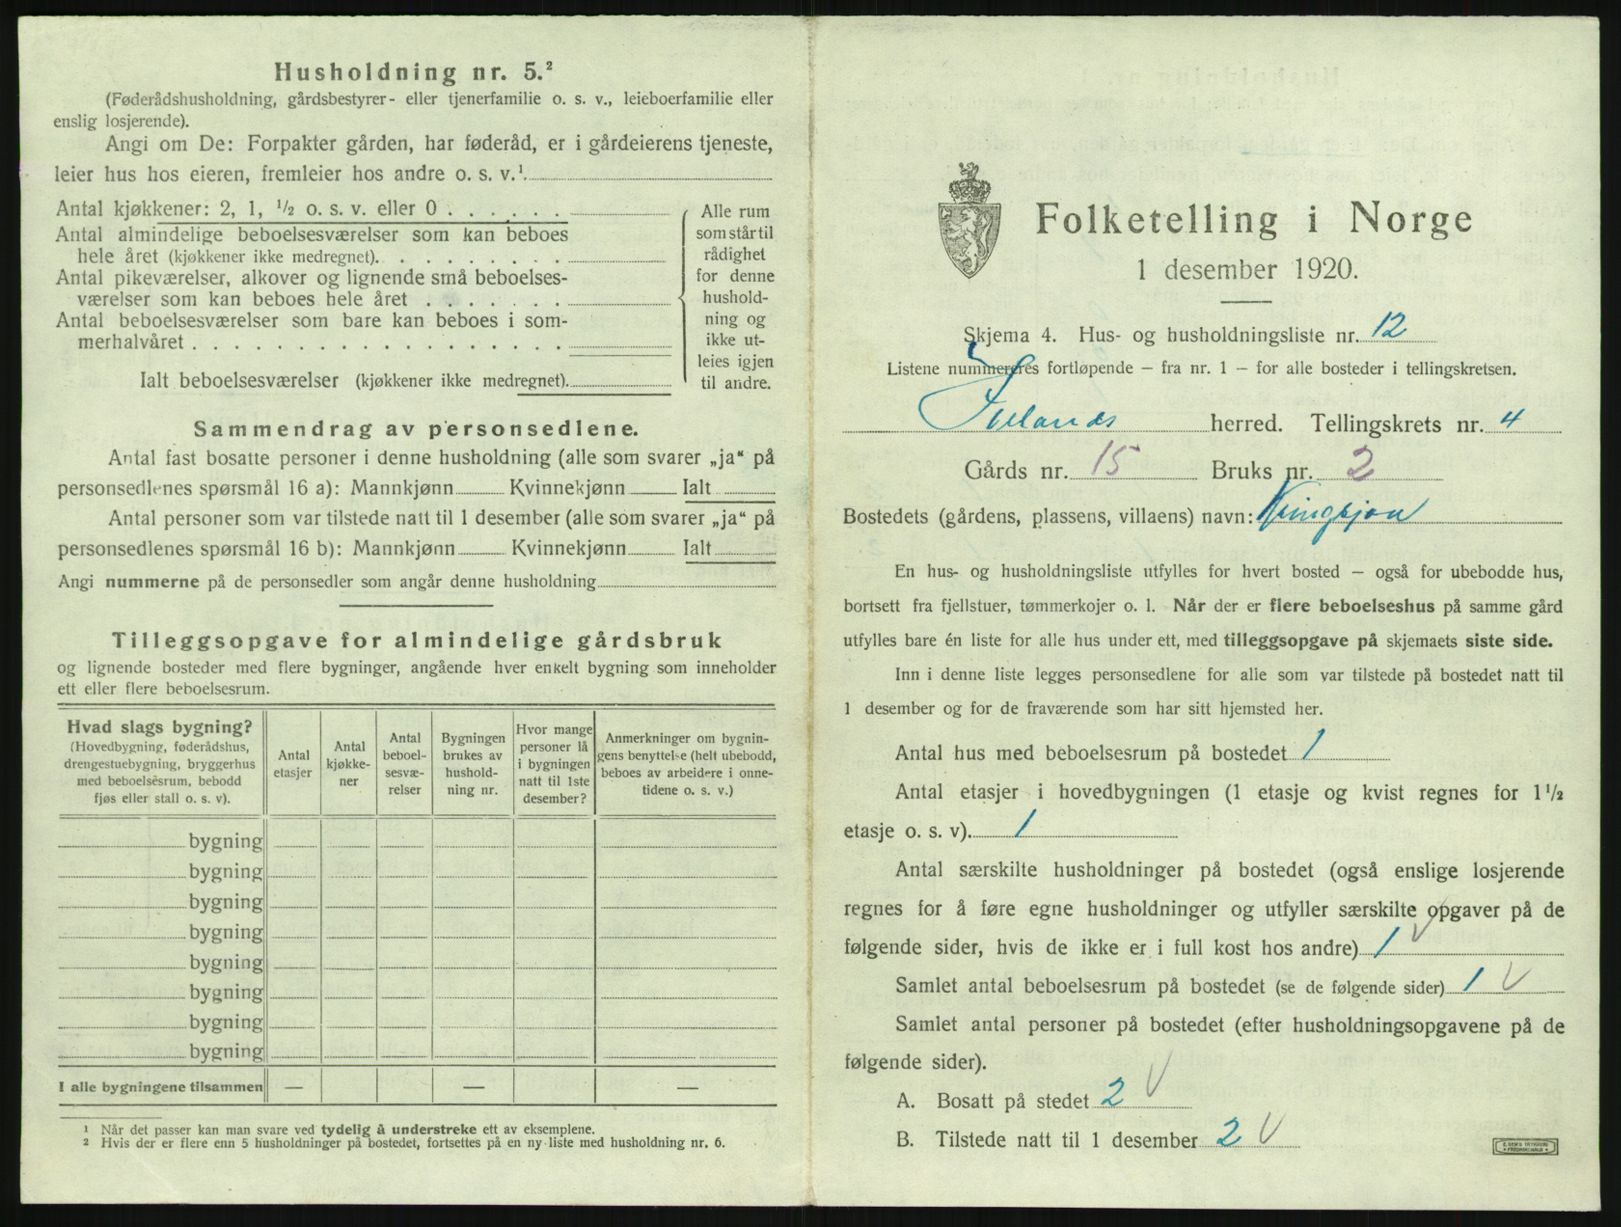 Husholdning nr. 5.²
(Føderådshusholdning, gårdsbestyrer- eller tjenerfamilie o. s. v., leieboerfamilie eller
enslig losjerende).
Angi om De: Forpakter gården, har føderåd, er i gårdeierens tjeneste,
leier hus hos eieren, fremleier hos andre o. s. v.¹
Antal kjøkkener: 2, 1, ½ o. s. v. eller 0
Antal almindelige beboelsesværelser som kan beboes
hele året (kjøkkener ikke medregnet).
Antal pikeværelser, alkover og lignende små beboelses-
værelser som kan beboes hele året
Antal beboelsesværelser som bare kan beboes i som-
merhalvåret
Alle rum
som står til
rådighet
for denne
hushold-
ning og
ikke ut-
leies igjen
til andre.
Ialt beboelsesværelser (kjøkkener ikke medregnet).
Sammendrag av personsedlene.
Antal fast bosatte personer i denne husholdning (alle som svarer „ja“ på
personsedlenes spørsmål 16 a): Mannkjønn Kvinnekjønn Ialt
Antal personer som var tilstede natt til 1 desember (alle som svarer „ja“ på
personsedlenes spørsmål 16 b): Mannkjønn Kvinnekjønn Ialt
Angi nummerne på de personsedler som angår denne husholdning
Tilleggsopgave for almindelige gårdsbruk
og lignende bosteder med flere bygninger, angående hver enkelt bygning som inneholder
ett eller flere beboelsesrum.
Hvad slags bygning?
(Hovedbygning, føderådshus,
drengestuebygning, bryggerhus
med beboelsesrum, bebodd
fjøs eller stall o. s. v).
Antal
etasjer
Antal
kjøkke-
ner
Antal
beboel-
sesvæ-
relser
Bygningen
brukes av
hushold-
ning nr.
Hvor mange
personer lå
i bygningen
natt til 1ste
desember?
Anmerkninger om bygnin-
gens benyttelse (helt ubebodd,
beboes av arbeidere i onne-
tidene o. s. v.)
bygning
bygning
bygning
bygning
bygning
bygning
bygning
bygning
I alle bygningene tilsammen — — —
¹ Når det passer kan man svare ved tydelig å understreke ett av eksemplene.
² Hvis der er flere enn 5 husholdninger på bostedet, fortsettes på en ny liste med husholdning nr. 6.
Folketelling i Norge
1 desember 1920.
Skjema 4. Hus- og husholdningsliste nr. 12
Listene nummereres fortløpende – fra nr. 1 – for alle bosteder i tellingskretsen.
herred. Tellingskrets nr. 4
Gårds nr. 15 Bruks nr. 2
Bostedets (gårdens, plassens, villaens) navn: Kringsjøu
En hus- og husholdningsliste utfylles for hvert bosted – også for ubebodde hus,
bortsett fra fjellstuer, tømmerkojer o. l. Når der er flere beboelseshus på samme gård
utfylles bare én liste for alle hus under ett, med tilleggsopgave på skjemaets siste side.
Inn i denne liste legges personsedlene for alle som var tilstede på bostedet natt til
1 desember og for de fraværende som har sitt hjemsted her.
Antal hus med beboelsesrum på bostedet 1
Antal etasjer i hovedbygningen (1 etasje og kvist regnes for 1½
etasje o. s. v). 1
Antal særskilte husholdninger på bostedet (også enslige losjerende
regnes for å føre egne husholdninger og utfyller særskilte opgaver på de
følgende sider, hvis de ikke er i full kost hos andre) 1 V
Samlet antal beboelsesrum på bostedet (se de følgende sider) 1 V
Samlet antal personer på bostedet (efter husholdningsopgavene på de
følgende sider).
A. Bosatt på stedet 2 V
B. Tilstede natt til 1 desember 2 V